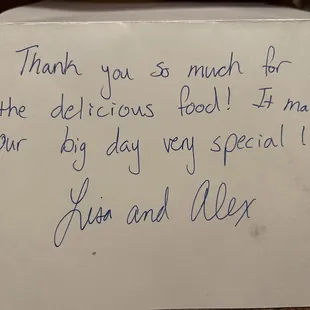 Thank you so much for
the delicious food! It ma
our big day very special!
Lisa and Alex